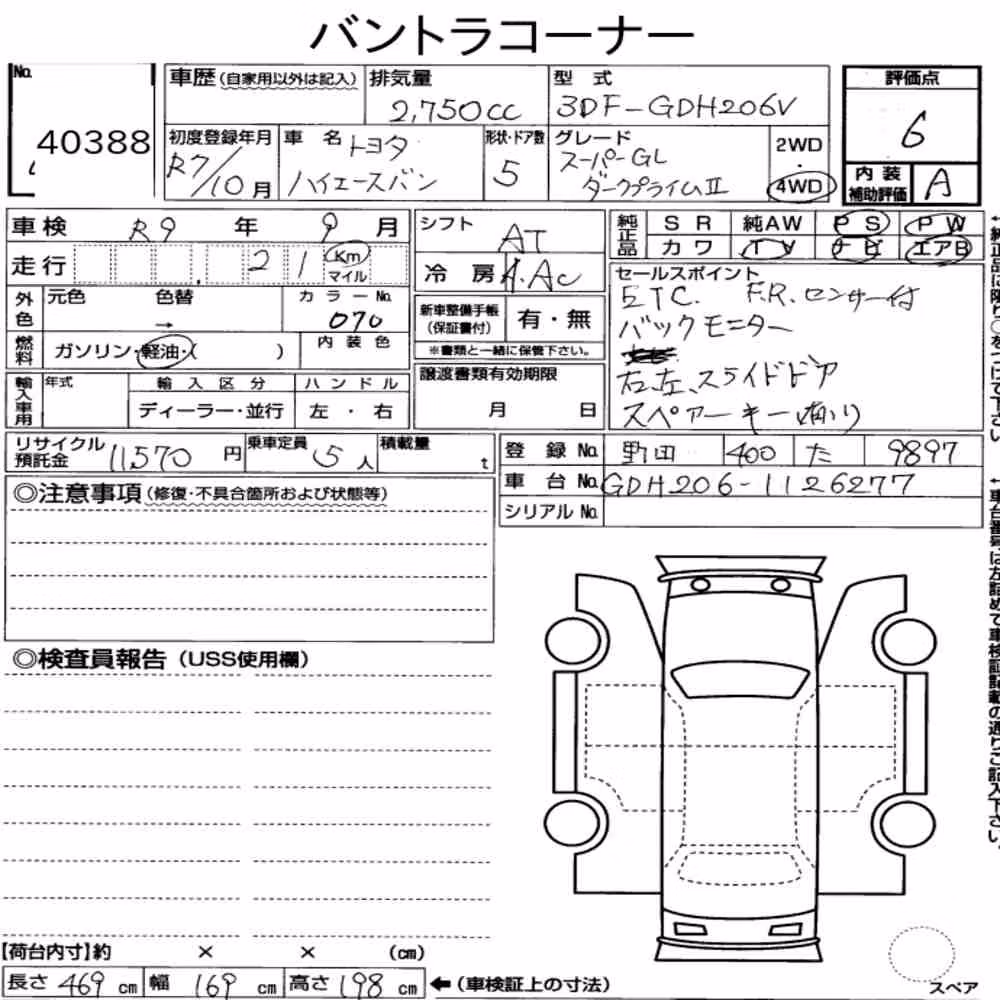 バントラコーナー
No. 40388
車歴(自家用以外は記入)
排気量 2,750cc
型式 3DF-GDH206V
評価点 6
初度登録年月 R7/10月
車名 トヨタ ハイエースバン
形状・ドア数 5
グレード スーパーGL ダークプライムⅡ
2WD・4WD
内装補助評価 A
車検 R9年 9月
シフト AT
純正品 SR 純AW PS PW
カワ TV ナビ エアB
走行 21 Km マイル
冷房 A.Ac
セールスポイント
ETC. F.R.センサー付
バックモニター
右、左、スライドドア
スペアーキー有り
外色 元色 色替 →
カラーNo. 070
新車整備手帳(保証書付) 有・無
※書類と一緒に保管下さい。
燃料 ガソリン・軽油・( )
内装色
譲渡書類有効期限 月 日
輸入車用 年式 輸入区分 ハンドル
ディーラー・並行 左・右
リサイクル預託金 11,570円
乗車定員 5人
積載量 t
登録No. 野田 400 た 9897
車台No. GDH206-1126277
シリアルNo.
◎注意事項(修復・不具合箇所および状態等)
◎検査員報告(USS使用欄)
【荷台内寸】約 × × (cm)
長さ 469cm 幅 169cm 高さ 198cm ←(車検証上の寸法)
スペア